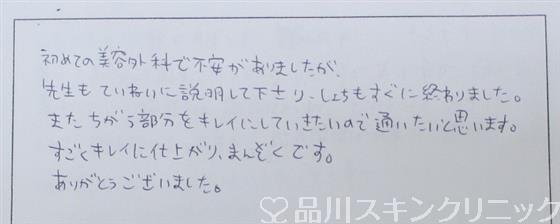 初めての美容外科で不安がありましたが、
先生もていねいに説明して下さり、しょちもすぐに終わりました。
またちがう部分をキレイにしていきたいので通いたいと思います。
すごくキレイに仕上がり、まんぞくです。
ありがとうございました。
品川スキンクリニック